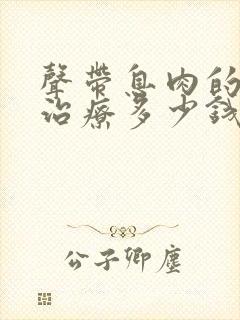 聲帶息肉的
治療多少錢
公子卿塵